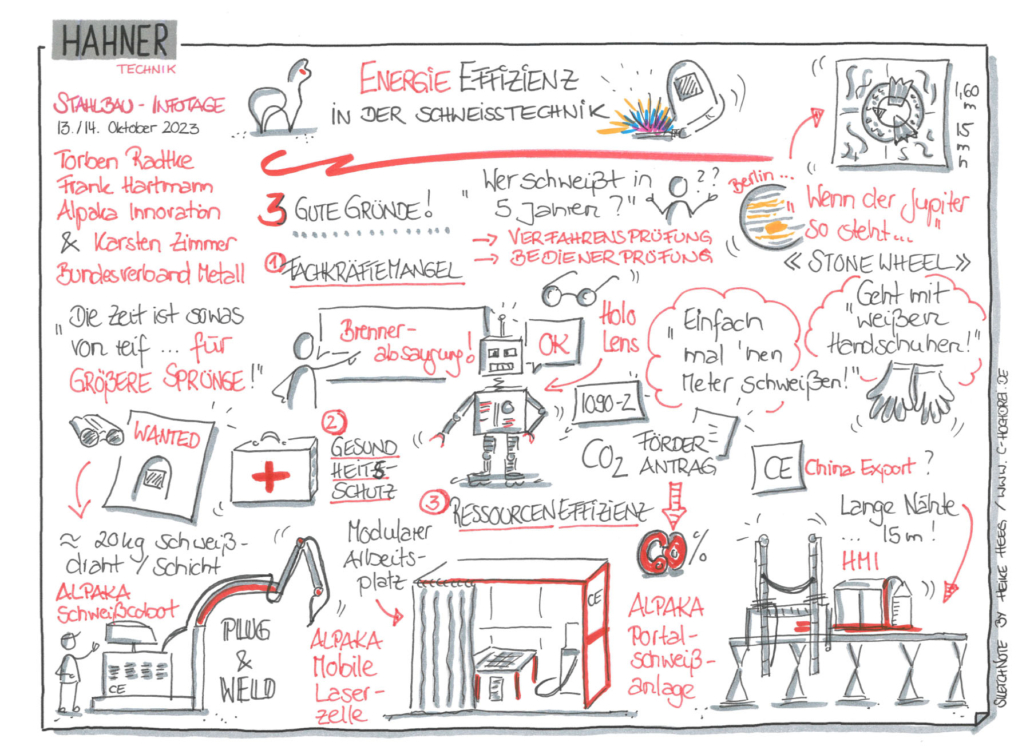 HAHNER
TECHNIK
STAHLBAU - INFOTAGE
13./14. Oktober 2023
Torben Radtke
Frank Hartmann
Alpaka Innovation
& Karsten Zimmer
Bundesverband Metall
ENERGIE EFFIZIENZ
IN DER SCHWEISSTECHNIK
1,60
m
15
m
h
3 GUTE GRÜNDE!
"Wer schweißt in
5 Jahren?"
??
→ VERFAHRENSPRÜFUNG
→ BEDIENERPRÜFUNG
Berlin...
"Wenn der Jupiter
so steht..."
« STONE WHEEL »
① FACHKRÄFTEMANGEL
"Die Zeit ist sowas
von reif ... für
GRÖßERE SPRÜNGE!"
Brenner-
absaugung!
OK
Holo
Lens
"Einfach
mal 'nen
Meter schweißen!"
"Geht mit
weißen
Handschuhen!"
WANTED
②
GESUND
HEITS-
SCHUTZ
1090-2
CO2
FÖRDER
ANTRAG
CE
China Export?
③ RESSOURCENEFFIZIENZ
40%
≈ 20kg Schweiß-
draht / Schicht
ALPAKA
Schweißcobot
CE
PLUG
&
WELD
Modularer
Arbeits-
platz
ALPAKA
Mobile
Laser-
zelle
CE
ALPAKA
Portal-
schweiß-
anlage
Lange Nähte
... 15m!
HMI
SKETCHNOTE BY HEIKE HEEG / WWW.C-HOCHDREI.DE